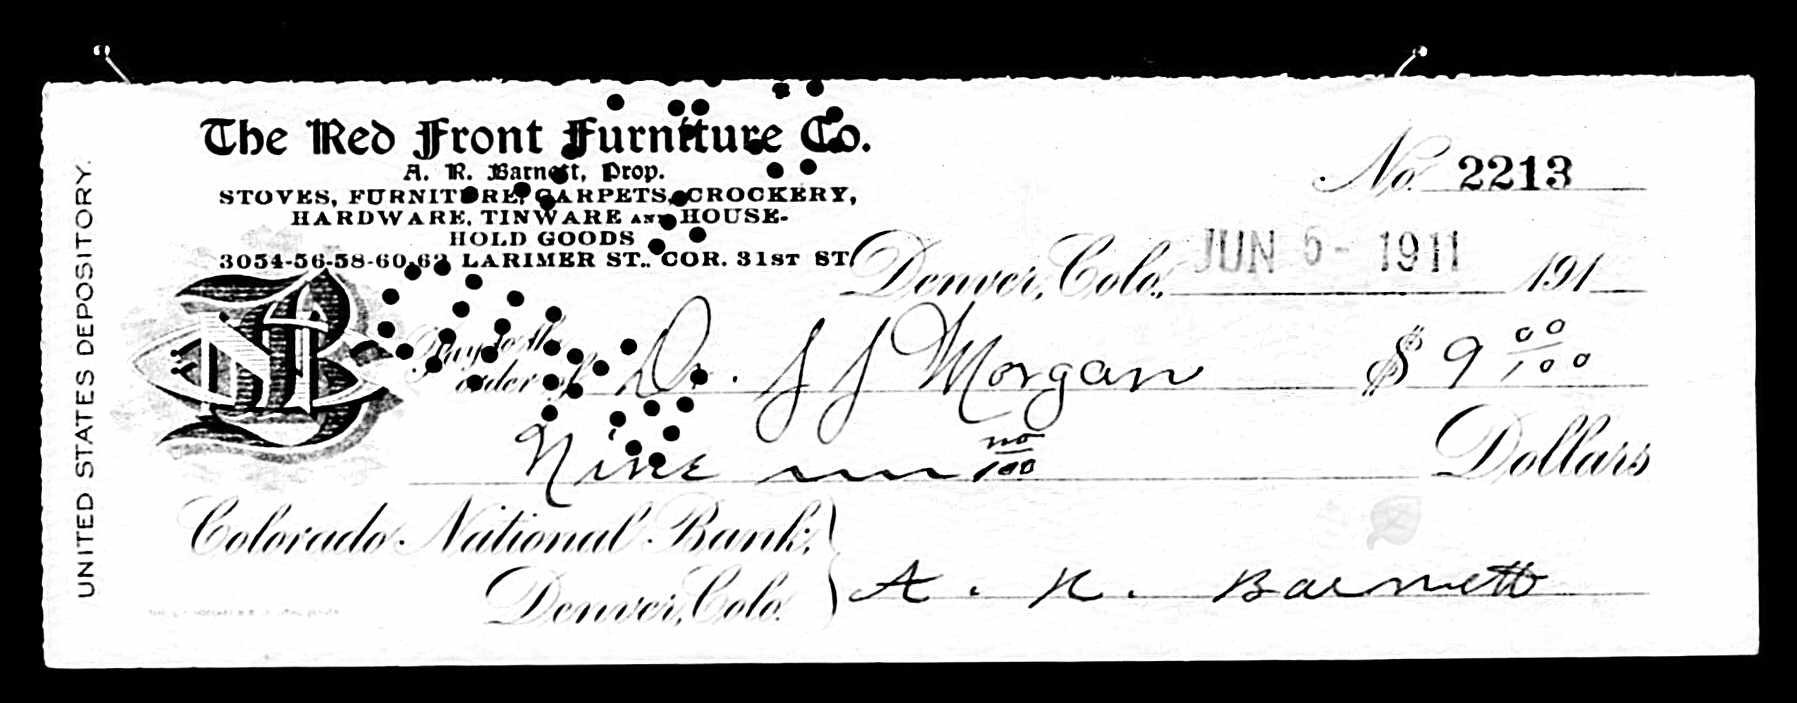 The Red Front Furniture Co.
A. R. Barnett, Prop.
STOVES, FURNITURE, CARPETS, CROCKERY,
HARDWARE, TINWARE AND HOUSE-
HOLD GOODS
3054-56-58-60-62 LARIMER ST., COR. 31ST ST.
No. 2213
Denver, Colo., JUN 5 - 1911 191
Pay to the
order of Dr. J J Morgan $ 9 00/100
Nine no/100 Dollars
Colorado National Bank,
Denver, Colo.
A. R. Barnett
UNITED STATES DEPOSITORY.